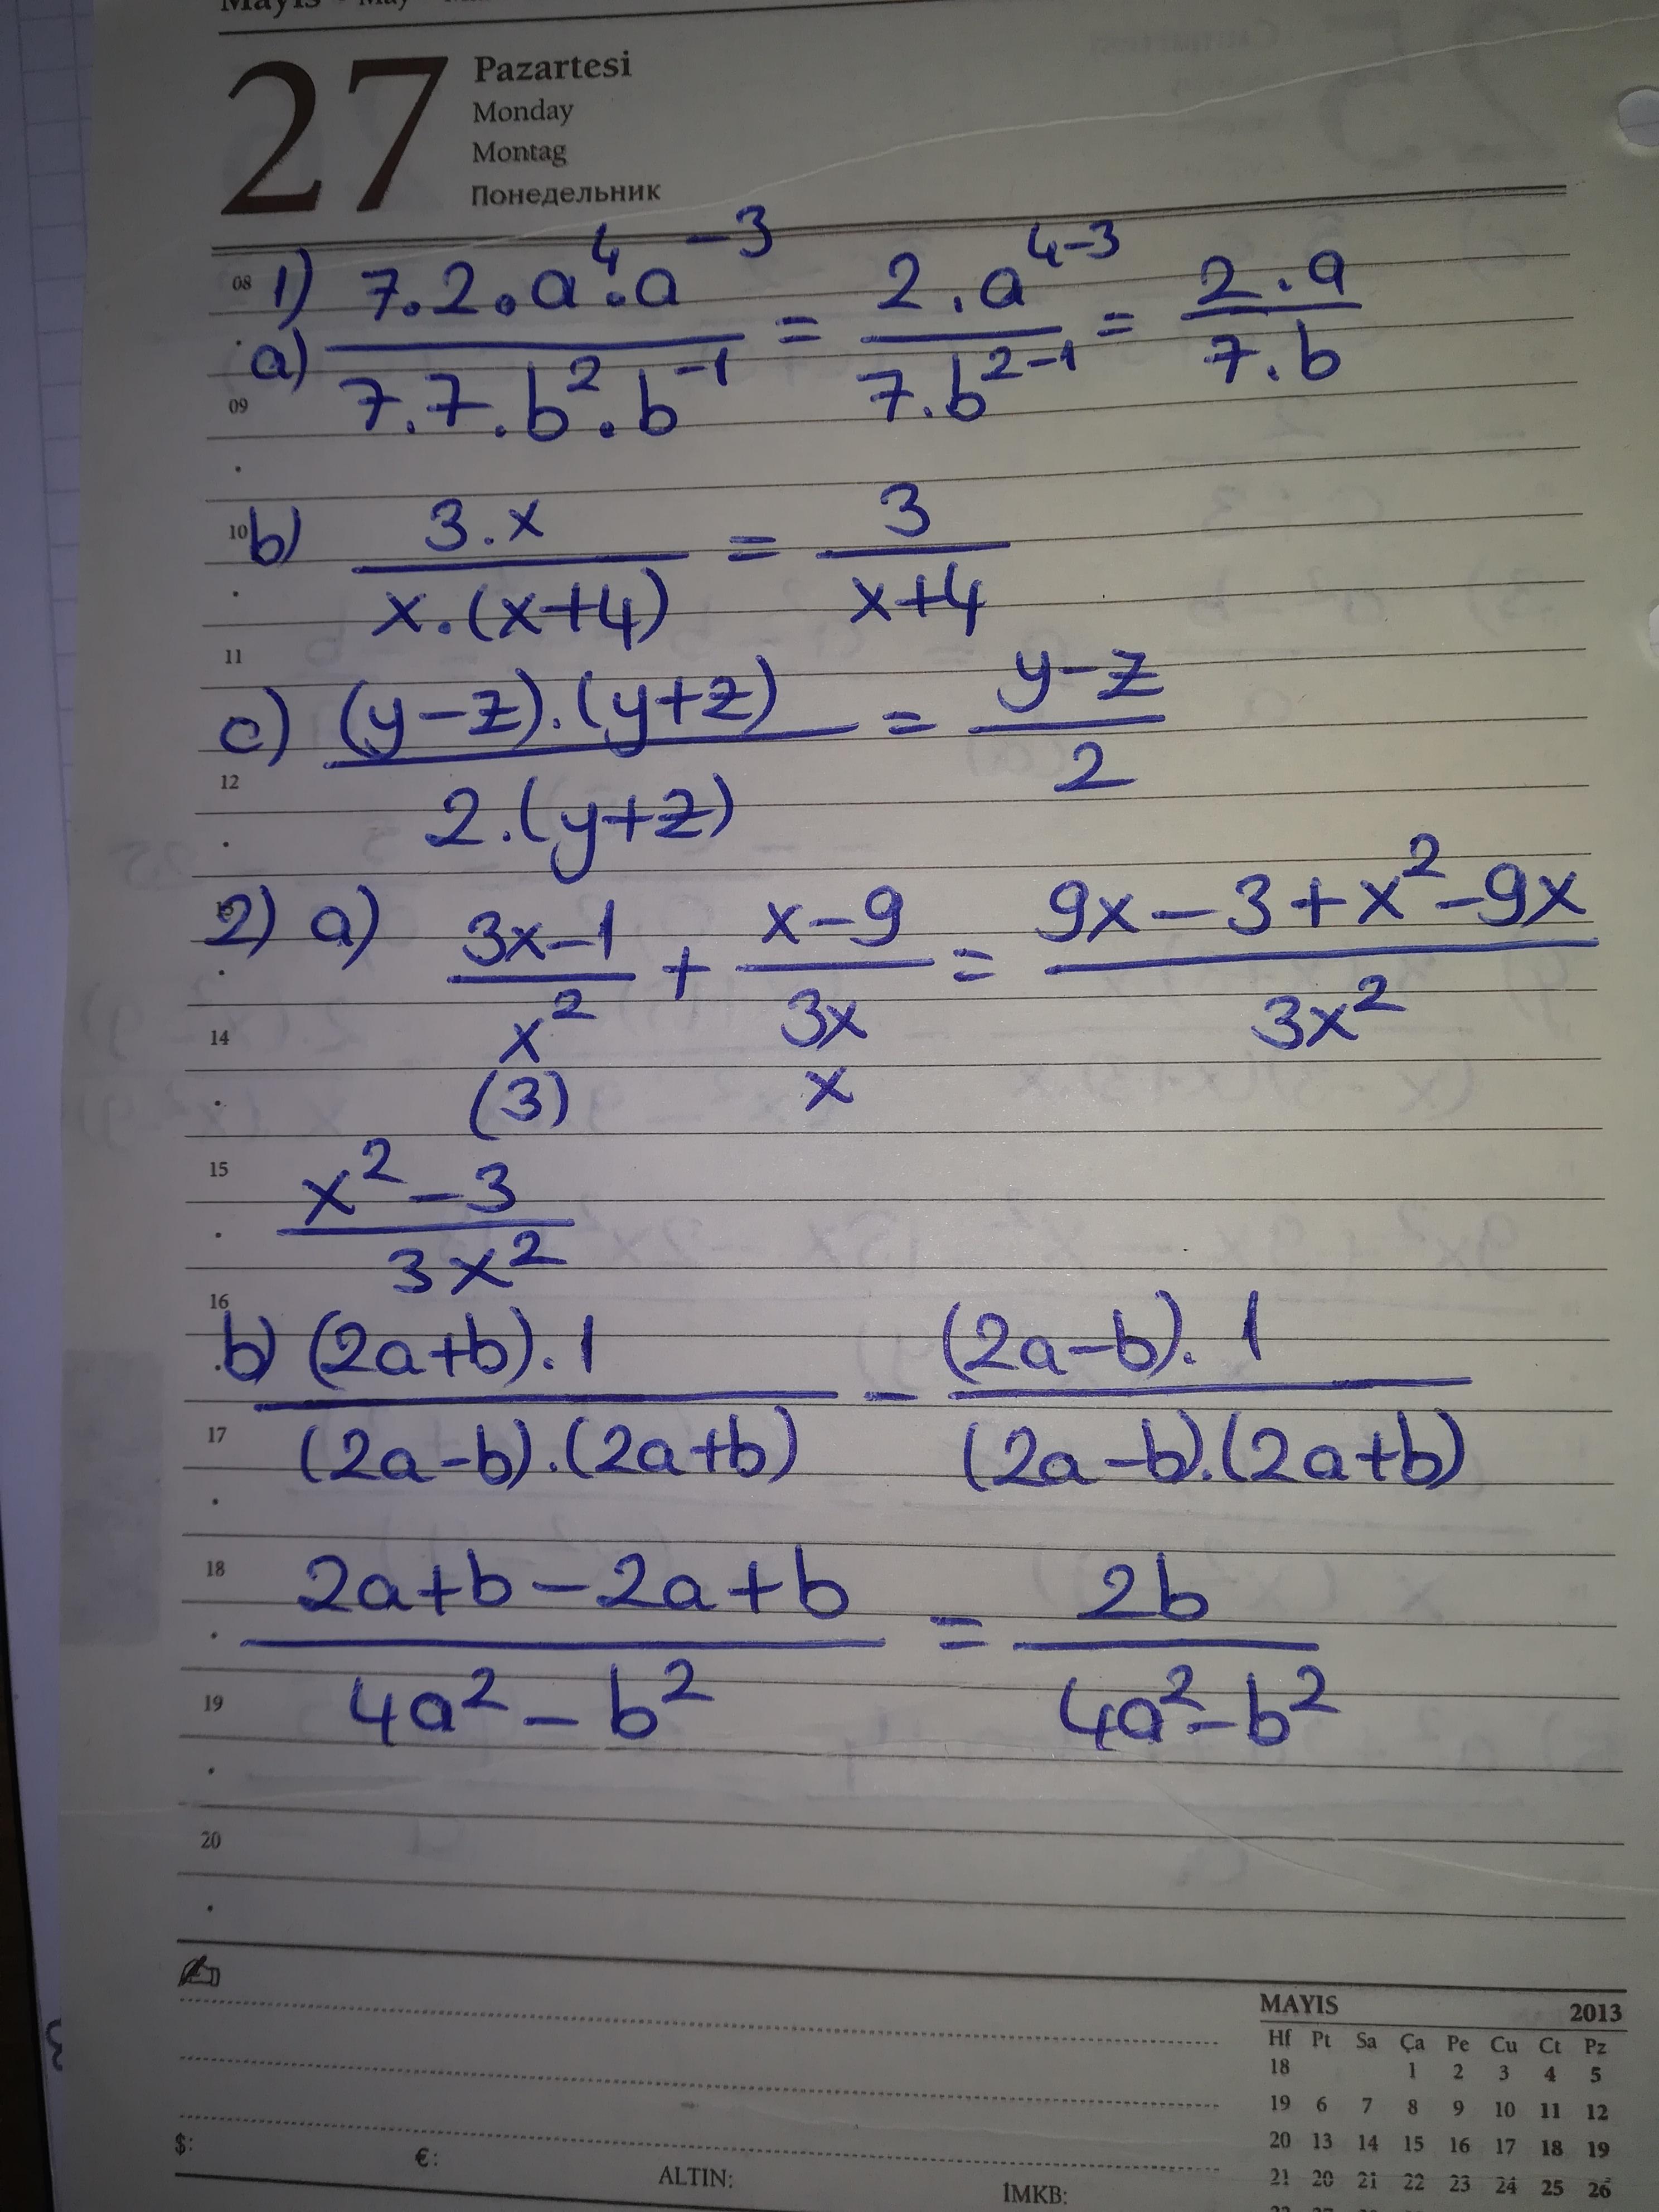 27
Pazartesi
Monday
Montag
Понедельник
08
1) a) 7.2.a⁴.a⁻³ / 7.7.b².b⁻¹ = 2.a⁴⁻³ / 7.b²⁻¹ = 2.a / 7.b
09
10
b) 3.x / x.(x+4) = 3 / x+4
11
c) (y-z).(y+z) / 2.(y+z) = y-z / 2
12
2) a) 3x-1 / x² + x-9 / 3x = 9x-3+x²-9x / 3x²
14
(3) x
15
x²-3 / 3x²
16
b) (2a+b).1 / (2a-b).(2a+b) - (2a-b).1 / (2a-b).(2a+b)
17
18
2a+b-2a+b / 4a²-b² = 2b / 4a²-b²
19
20
MAYIS 2013
Hf Pt Sa Ça Pe Cu Ct Pz
18 1 2 3 4 5
19 6 7 8 9 10 11 12
20 13 14 15 16 17 18 19
21 20 21 22 23 24 25 26
$: €: ALTIN: İMKB: